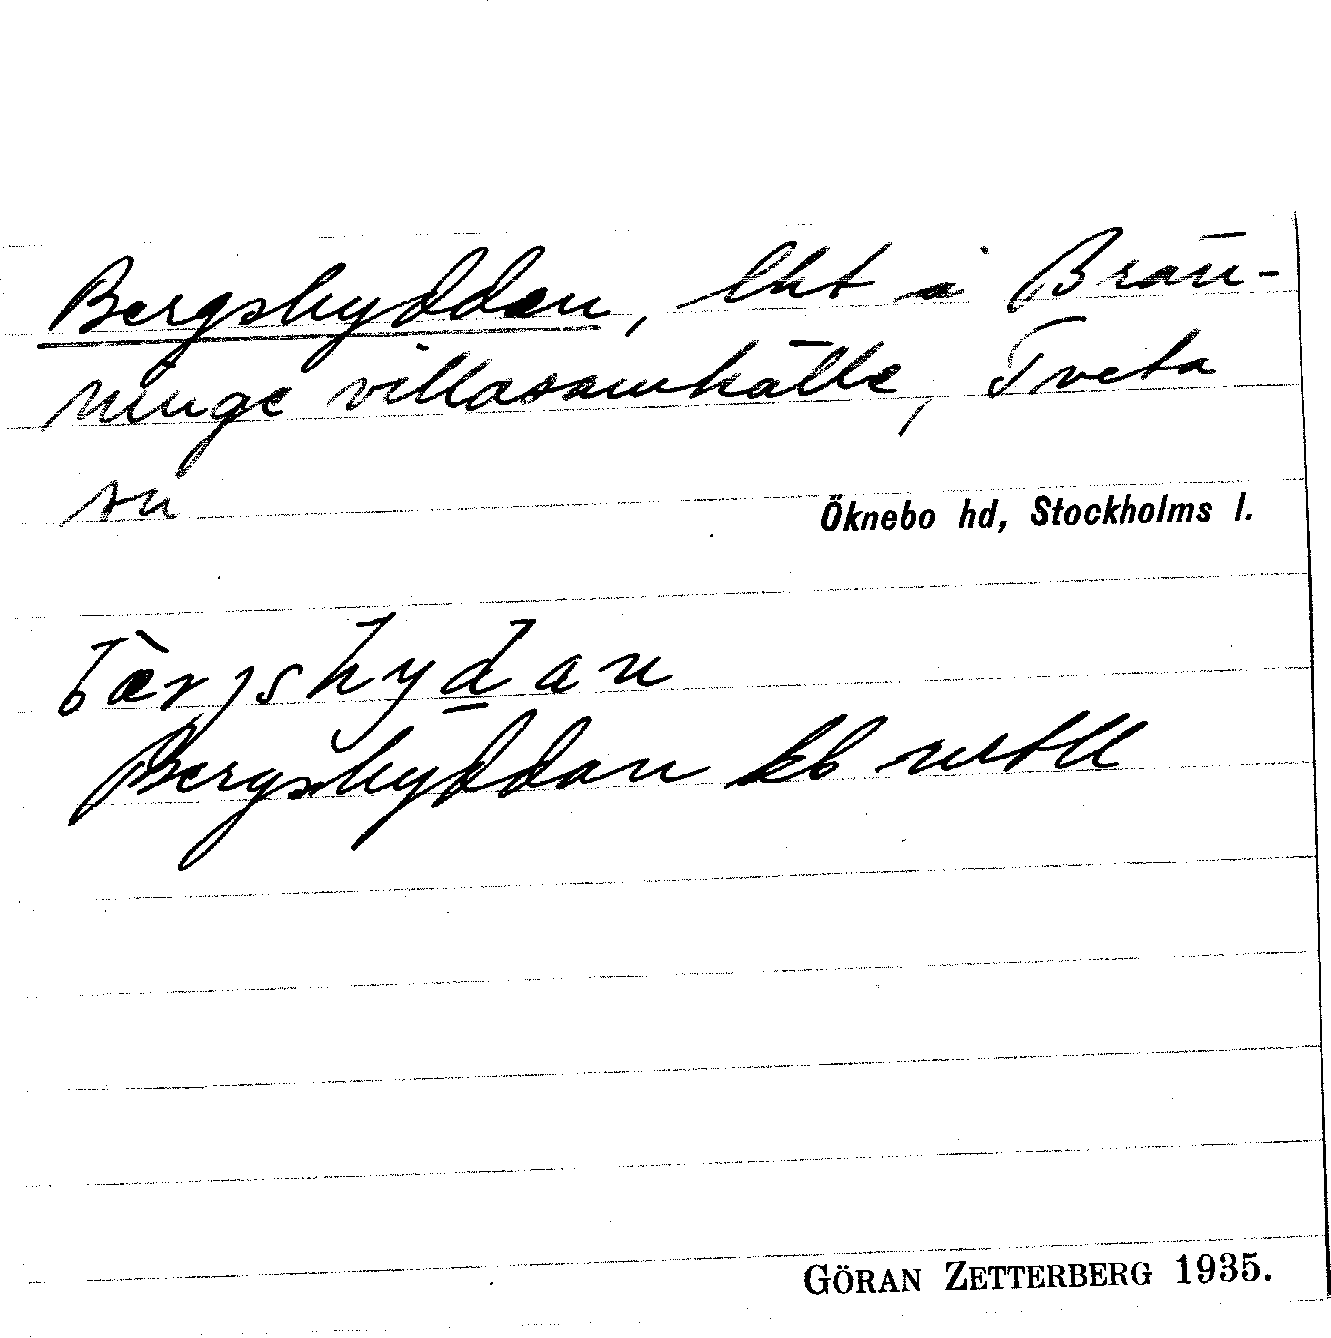 Bergshyddan, lht i Brän-
ninge villasamhälle, Tveta
sn
Öknebo hd, Stockholms l.
bærjshydan
Bergshyddan
GÖRAN ZETTERBERG 1935.